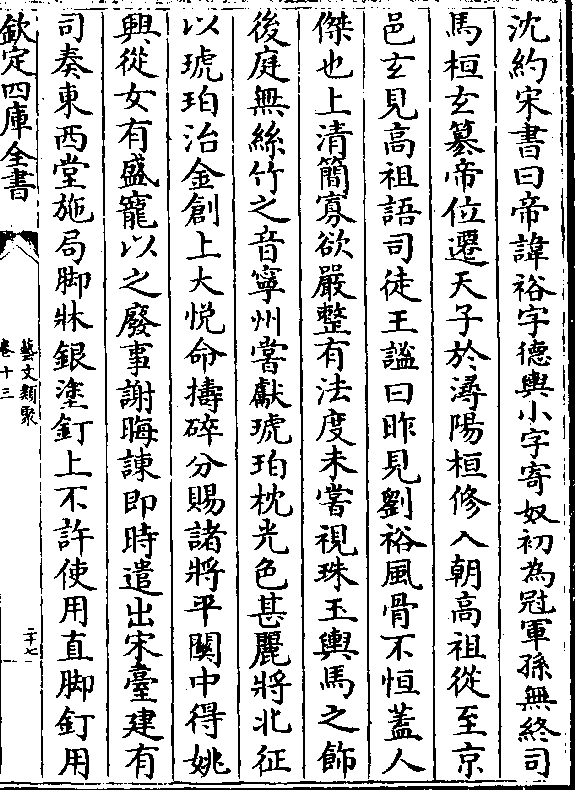 沈約宋書曰帝諱裕字德輿小字寄奴初為冠軍孫無終司
馬桓玄簒帝位遷天子於潯陽桓修入朝高祖從至京
邑玄見高祖語司徒王謐曰昨見劉裕風骨不恒蓋人
傑也上清簡寡欲嚴整有法度未嘗視珠玉輿馬之飾
後庭無絲竹之音寧州嘗獻琥珀枕光色甚麗將北征
以琥珀治金創上大悅命擣碎分賜諸將平關中得姚
興從女有盛寵以之廢事謝晦諫即時遣出宋臺建有
司奏東西堂施局脚牀銀塗釘上不許使用直脚釘用
欽定四庫全書
藝文類聚
卷十三
二十七